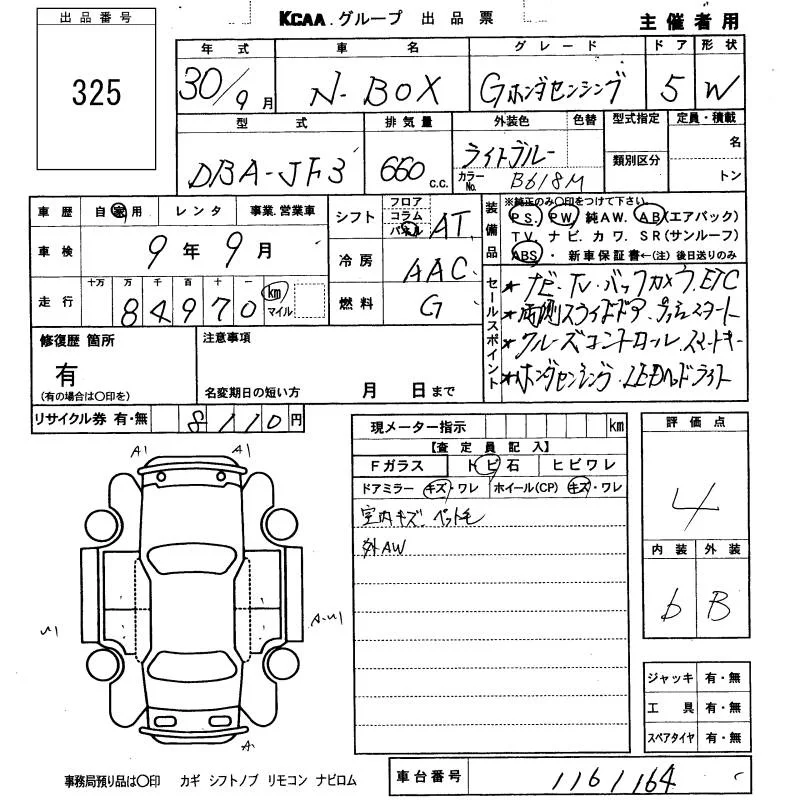 KCAA.グループ 出品票
主催者用
出品番号
325
年式 車名 グレード ドア 形状
30/9月 N-BOX Gホンダセンシング 5 W
型式 排気量 外装色 色替 型式指定 定員・積載
DBA-JF3 660 c.c. ライトブルー 名
カラーNo. B618M 類別区分 トン
車歴 自家用 レンタ 事業.営業車
車検 9年9月
走行 十万 万 千 百 十 一
84970 km マイル
シフト フロア コラム パネル AT
冷房 AAC
燃料 G
装備品 ※純正のみ〇印をつけて下さい。
P.S. PW 純AW. AB(エアバック)
TV. ナビ. カワ. SR(サンルーフ)
ABS・新車保証書←(注)後日送りのみ
セールスポイント
★ナビ・TV・バックカメラ.ETC
★両側スライドドア.プッシュスタート
★クルーズコントロール.スマートキー
★ホンダセンシング.LEDヘッドライト
修復歴 箇所
有
(有の場合は〇印を)
注意事項
名変期日の短い方 月 日まで
リサイクル券 有・無 8110円
現メーター指示 km
【査定員記入】
Fガラス トビ石 ヒビワレ
ドアミラー キズ・ワレ ホイール(CP) キズ・ワレ
室内キズ ペット毛
外AW
評価点
4
内装 外装
b B
A1 A1
A-U1
A-
ジャッキ 有・無
工具 有・無
スペアタイヤ 有・無
事務局預り品は〇印 カギ シフトノブ リモコン ナビロム
車台番号 1161164